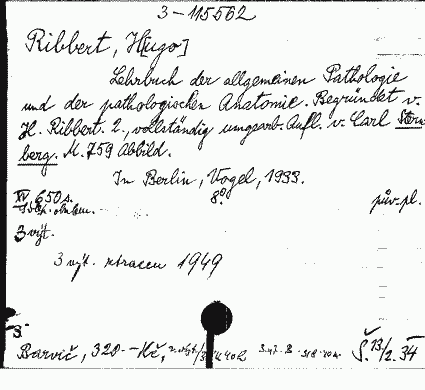 3-115562
Ribbert, H[ugo]
Lehrbuch der allgemeinen Pathologie
und der pathologischen Anatomie. Begründet v.
H. Ribbert. 2., vollständig umgearb. Aufl. v. Carl Stern-
berg. M. 759 Abbild.
In Berlin, Vogel, 1933.
XV, 650 s. 8° pův. pl.
3 výt.
3 výt. ztracen 1949
Barvič, 320.- Kč, Š. 13/2. 34